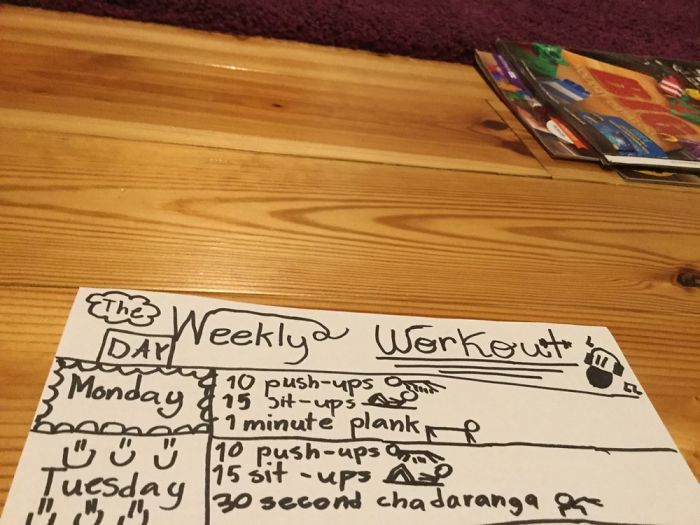 The
Weekly Workout
DAY
Monday
10 push-ups
15 sit-ups
1 minute plank
Tuesday
10 push-ups
15 sit-ups
30 second chadaranga